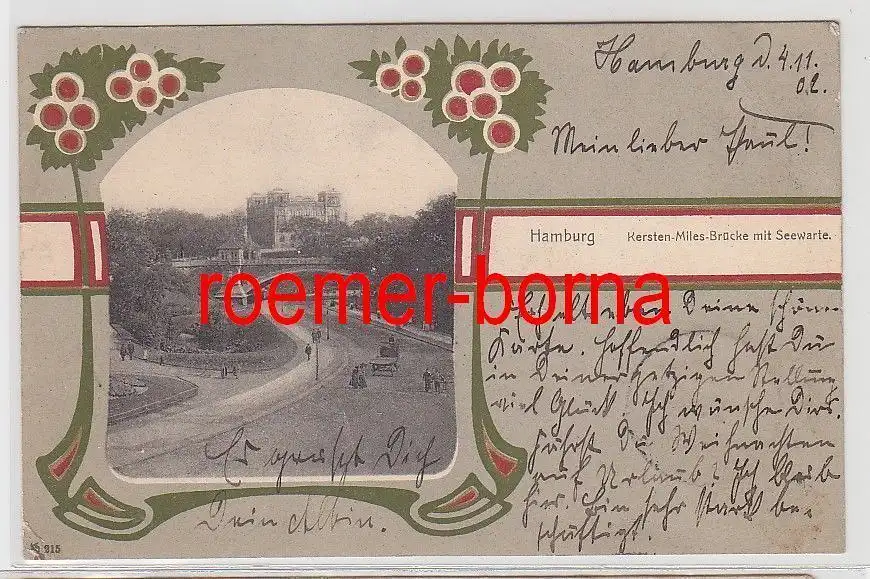 Hamburg d. 4.11.
02.
Mein lieber Paul!
Hamburg Kersten-Miles-Brücke mit Seewarte.
roemer-borna
Erhielt eben Deine schöne
Karte. Hoffendlich hast Du
in Deiner getzigen Stellung
viel Glück. Ich wünsche Dirs.
Fährst Du Weihnachten
auf Urlaub? Ich bleib
hier. Bin sehr stark be-
schäftigt.
Es grüsst Dich
Dein Albin.
215